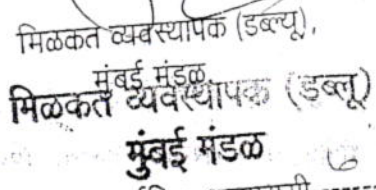 मिळकत व्यवस्थापक (डब्ल्यू),
मुंबई मंडळ
मिळकत व्यवस्थापक (डब्लू)
मुंबई मंडळ